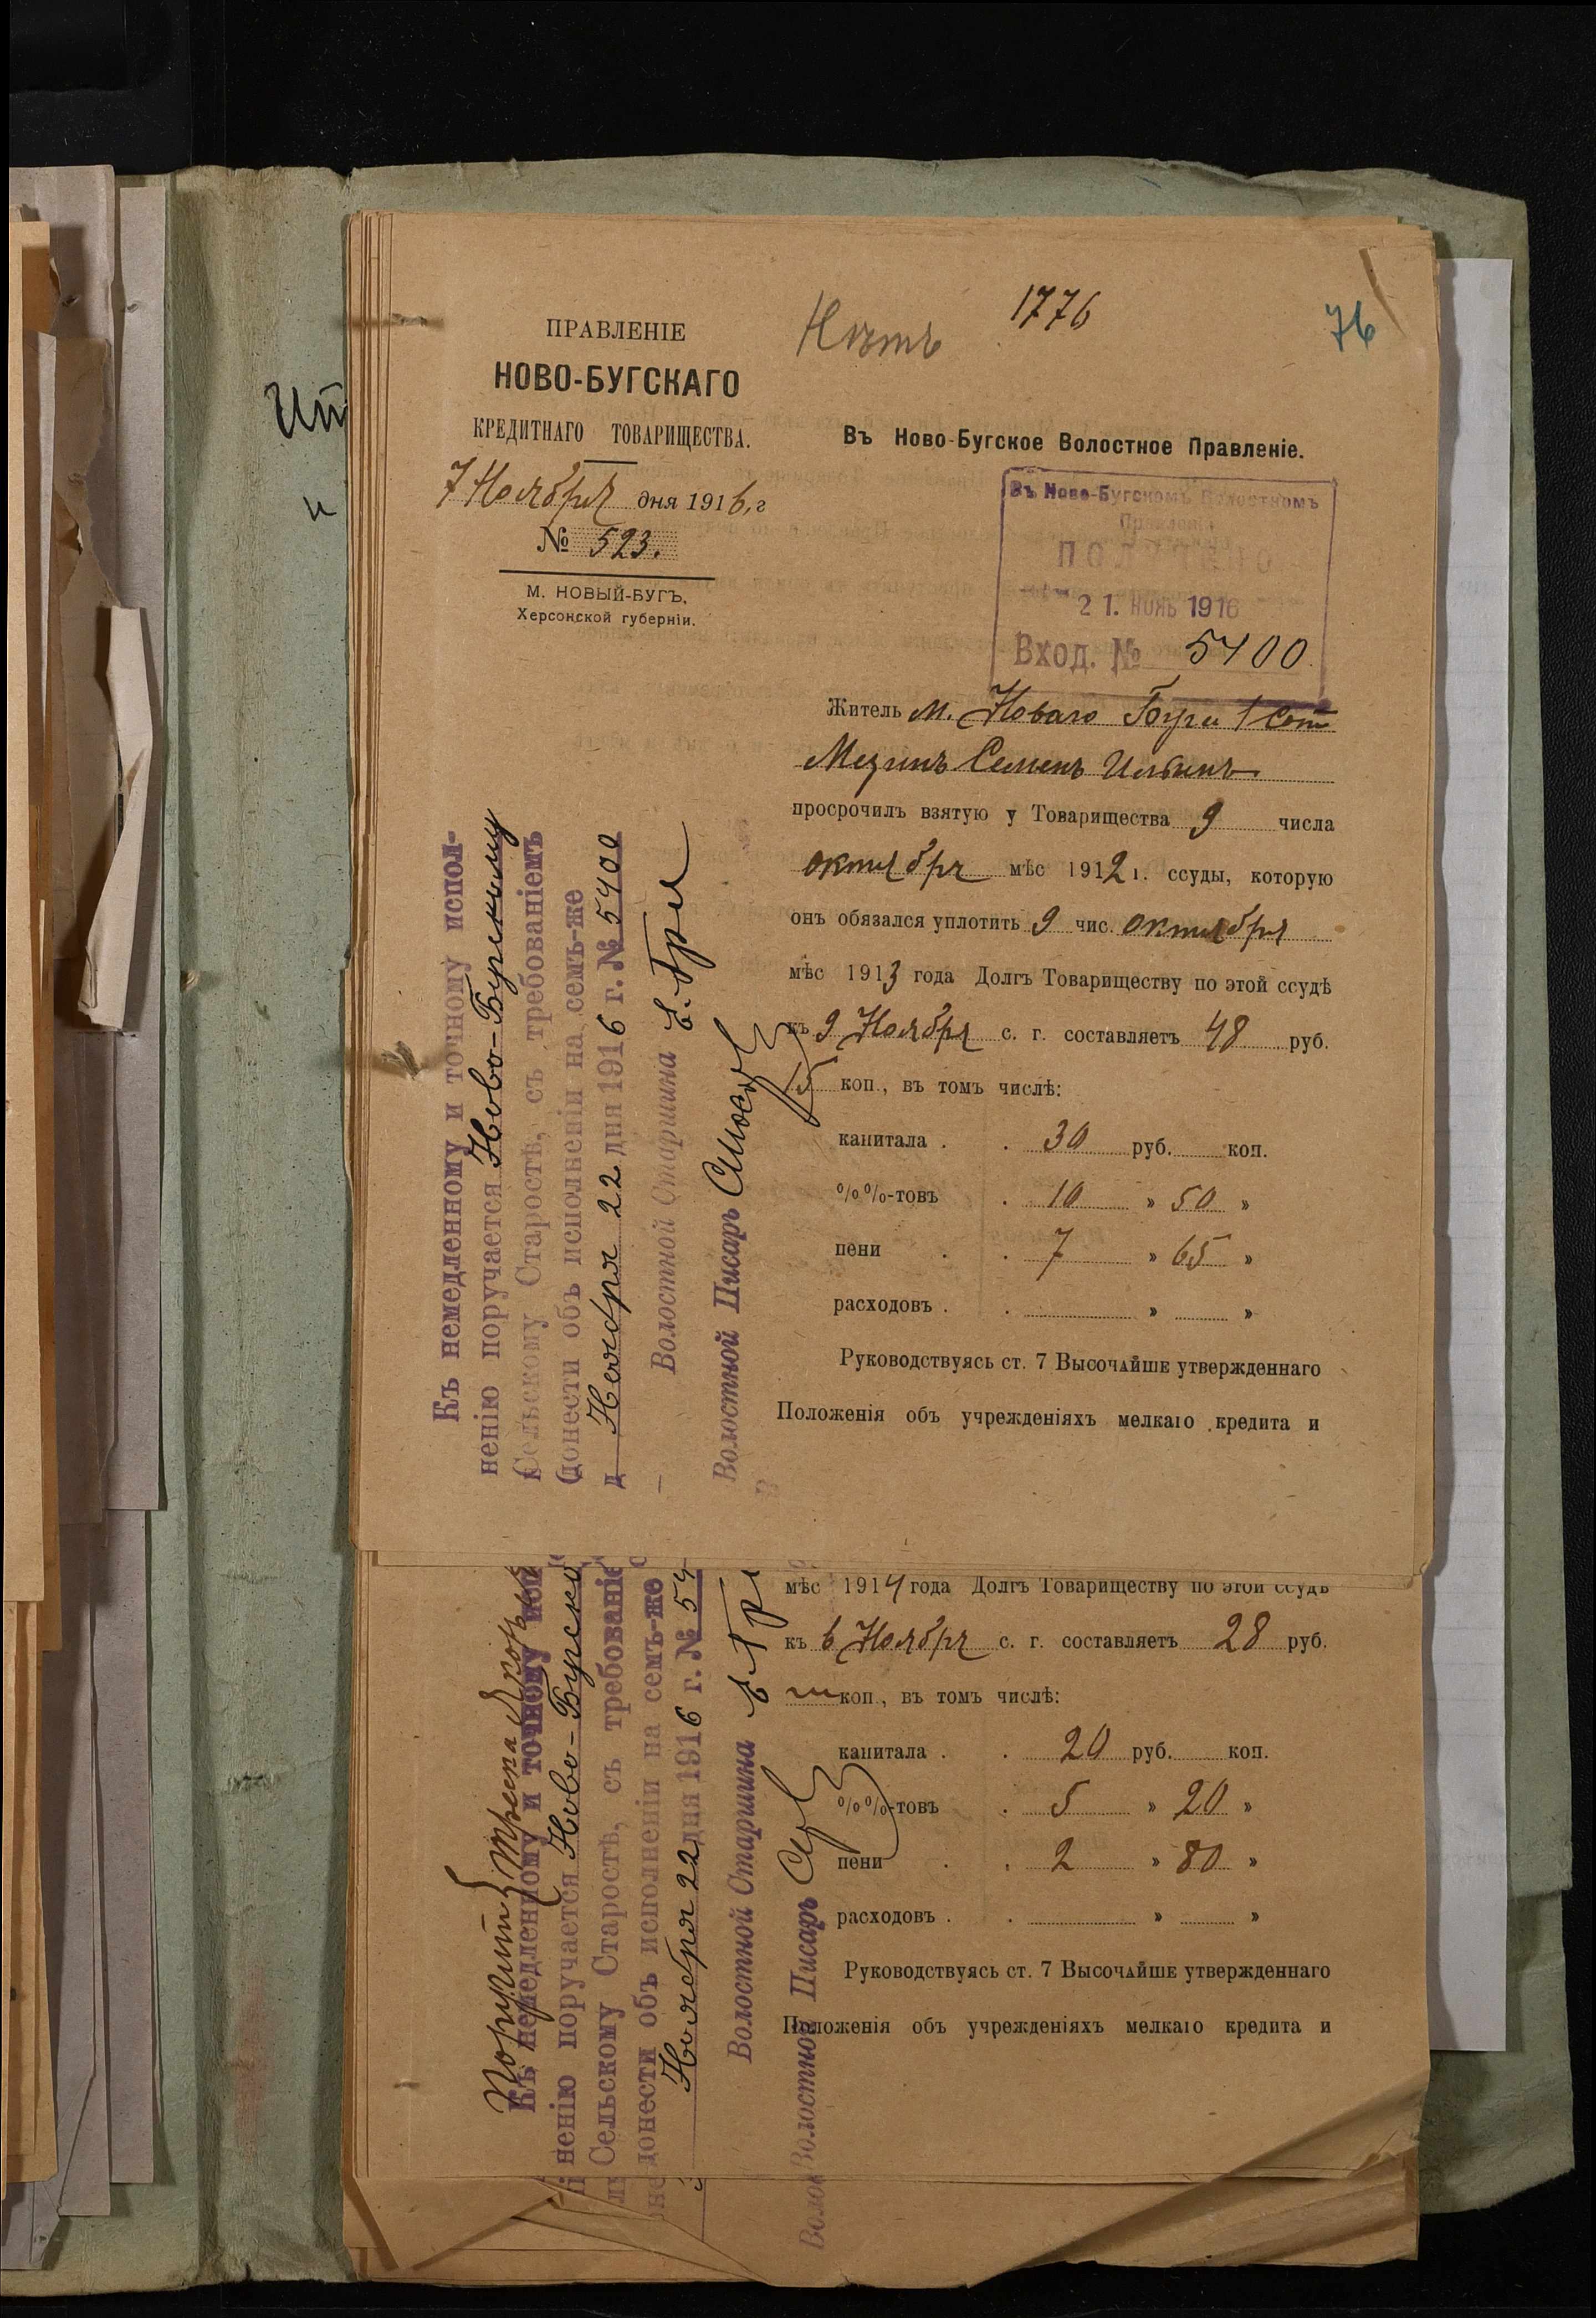 Ит
и
1776
76
Нѣтъ
ПРАВЛЕНІЕ
НОВО-БУГСКАГО
КРЕДИТНАГО ТОВАРИЩЕСТВА.
7 Ноября дня 1916, г
№ 523.
М. НОВЫЙ-БУГЪ,
Херсонской губерніи.
Въ Ново-Бугское Волостное Правленіе.
Въ Ново-Бугскомъ Волостномъ
Правленіи
ПОЛУЧЕНО
21. НОЯБ 1916
Вход. № 5400.
Житель м. Новаго Буга 1 Сот
Мезинъ Семенъ Ильинъ
просрочилъ взятую у Товарищества 9 числа
октября мѣс 1912 г. ссуды, которую
онъ обязался уплотить 9 чис. октября
мѣс 1913 года Долгъ Товариществу по этой ссудѣ
къ 9 Ноября с. г. составляетъ 48 руб.
15 коп., въ томъ числѣ:
капитала . . 30 руб. коп.
%%-товъ . 10 » 50 »
пени . . 7 » 65 »
расходовъ . . » »
Руководствуясь ст. 7 Высочайше утвержденнаго
Положенія объ учрежденіяхъ мелкаго кредита и
Къ немедленному и точному испол-
ненію поручается Ново-Бугскому
Сельскому Старостѣ, съ требованіемъ
донести объ исполненіи на семъ-же
Ноября 22 дня 1916 г. № 5400
Волостной Старшина Е. Гре
Волостной Писарь
мѣс 1914 года Долгъ Товариществу по этой ссудѣ
къ 6 Ноября с. г. составляетъ 28 руб.
коп., въ томъ числѣ:
капитала . . 20 руб. коп.
%%-товъ . 5 » 20 »
пени . . 2 » 80 »
расходовъ . . » »
Руководствуясь ст. 7 Высочайше утвержденнаго
Положенія объ учрежденіяхъ мелкаго кредита и
Поручит
Къ немедленному и точному исп
ненію поручается Ново-Бугско
Сельскому Старостѣ, съ требованіе
донести объ исполненіи на семъ-же
Ноября 22 дня 1916 г. № 54
Волостной Старшина
Волостной Писарь
Воло